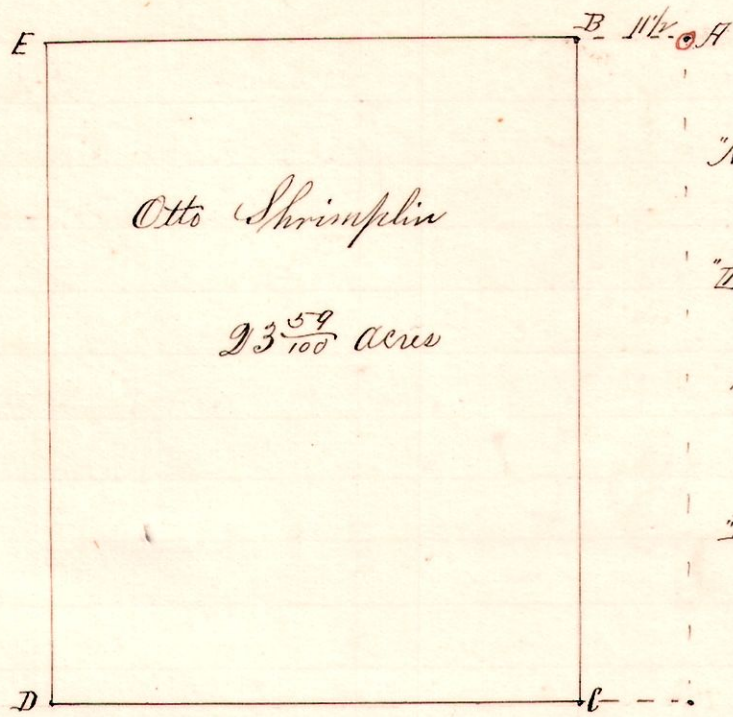 E B 11½ A
Otto Shrimplin
23 59/100 acres
D C